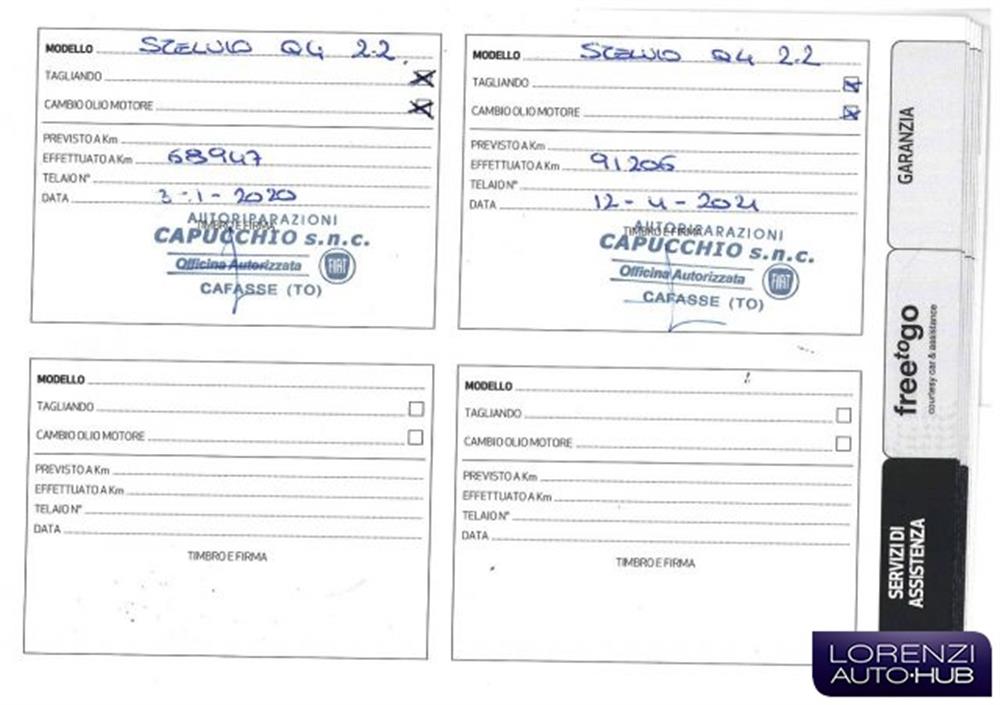 MODELLO STELVIO Q4 2.2
TAGLIANDO
CAMBIO OLIO MOTORE
PREVISTO A Km
EFFETTUATO A Km 68947
TELAIO N°
DATA 3-1-2020
TIMBRO E FIRMA
AUTORIPARAZIONI
CAPUCCHIO s.n.c.
Officina Autorizzata FIAT
CAFASSE (TO)
MODELLO STELVIO Q4 2.2
TAGLIANDO
CAMBIO OLIO MOTORE
PREVISTO A Km
EFFETTUATO A Km 91206
TELAIO N°
DATA 12-4-2021
TIMBRO E FIRMA
AUTORIPARAZIONI
CAPUCCHIO s.n.c.
Officina Autorizzata FIAT
CAFASSE (TO)
MODELLO
TAGLIANDO
CAMBIO OLIO MOTORE
PREVISTO A Km
EFFETTUATO A Km
TELAIO N°
DATA
TIMBRO E FIRMA
MODELLO
TAGLIANDO
CAMBIO OLIO MOTORE
PREVISTO A Km
EFFETTUATO A Km
TELAIO N°
DATA
TIMBRO E FIRMA
GARANZIA
freetogo
courtesy car & assistance
SERVIZI DI
ASSISTENZA
LORENZI
AUTO·HUB